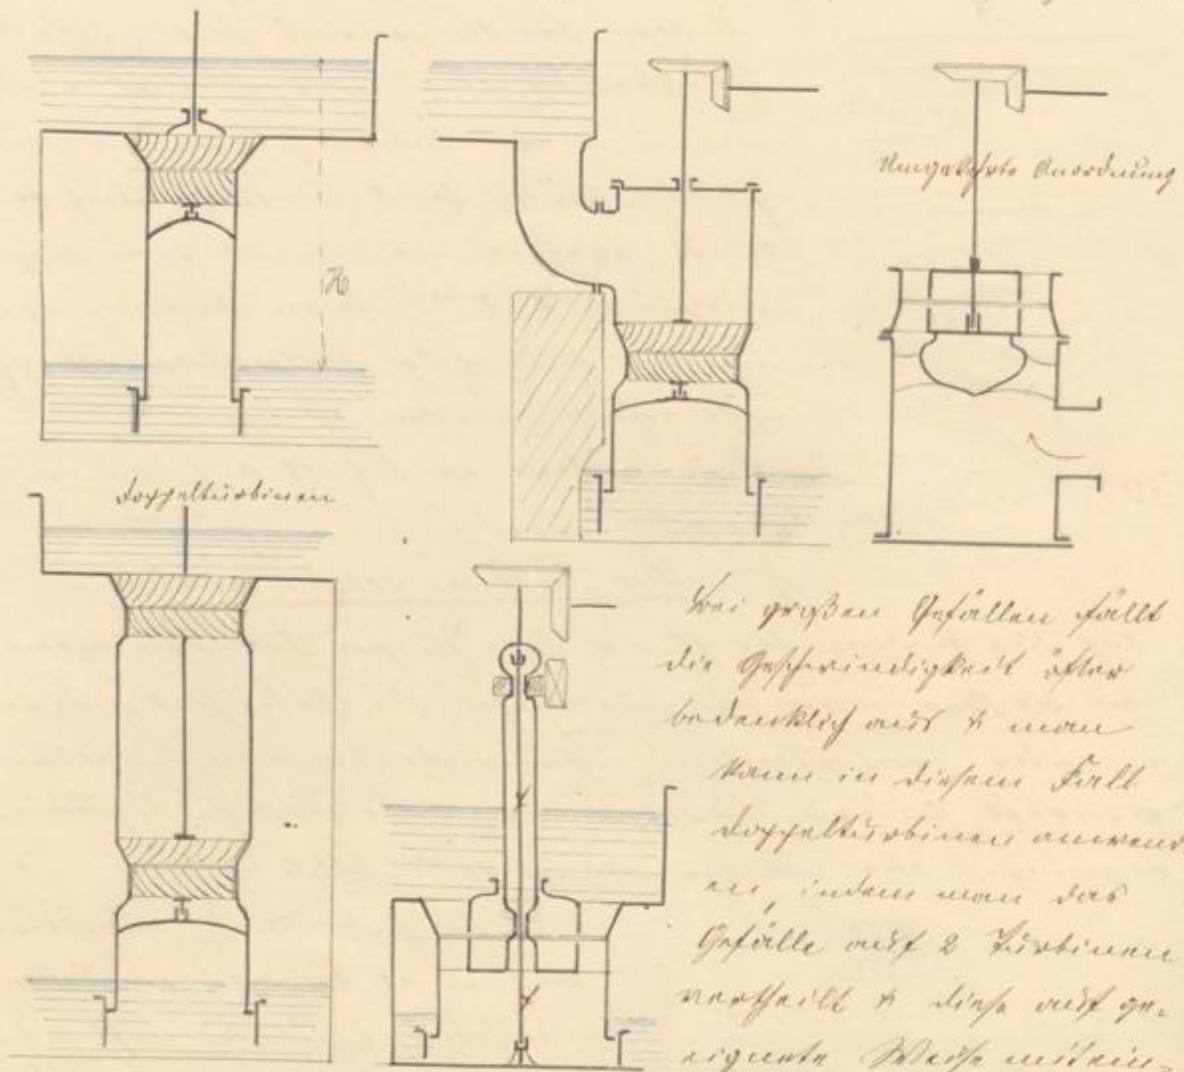 H
Umgekehrte Anordnung
Doppelturbinen
Bei großen Gefällen fällt
die Geschwindigkeit öfter
bedenklich aus & man
kann in diesem Fall
Doppelturbinen anwend-
en, indem man das
Gefälle auf 2 Turbinen
vertheilt & diese auf ge-
eignete Weise mitein-